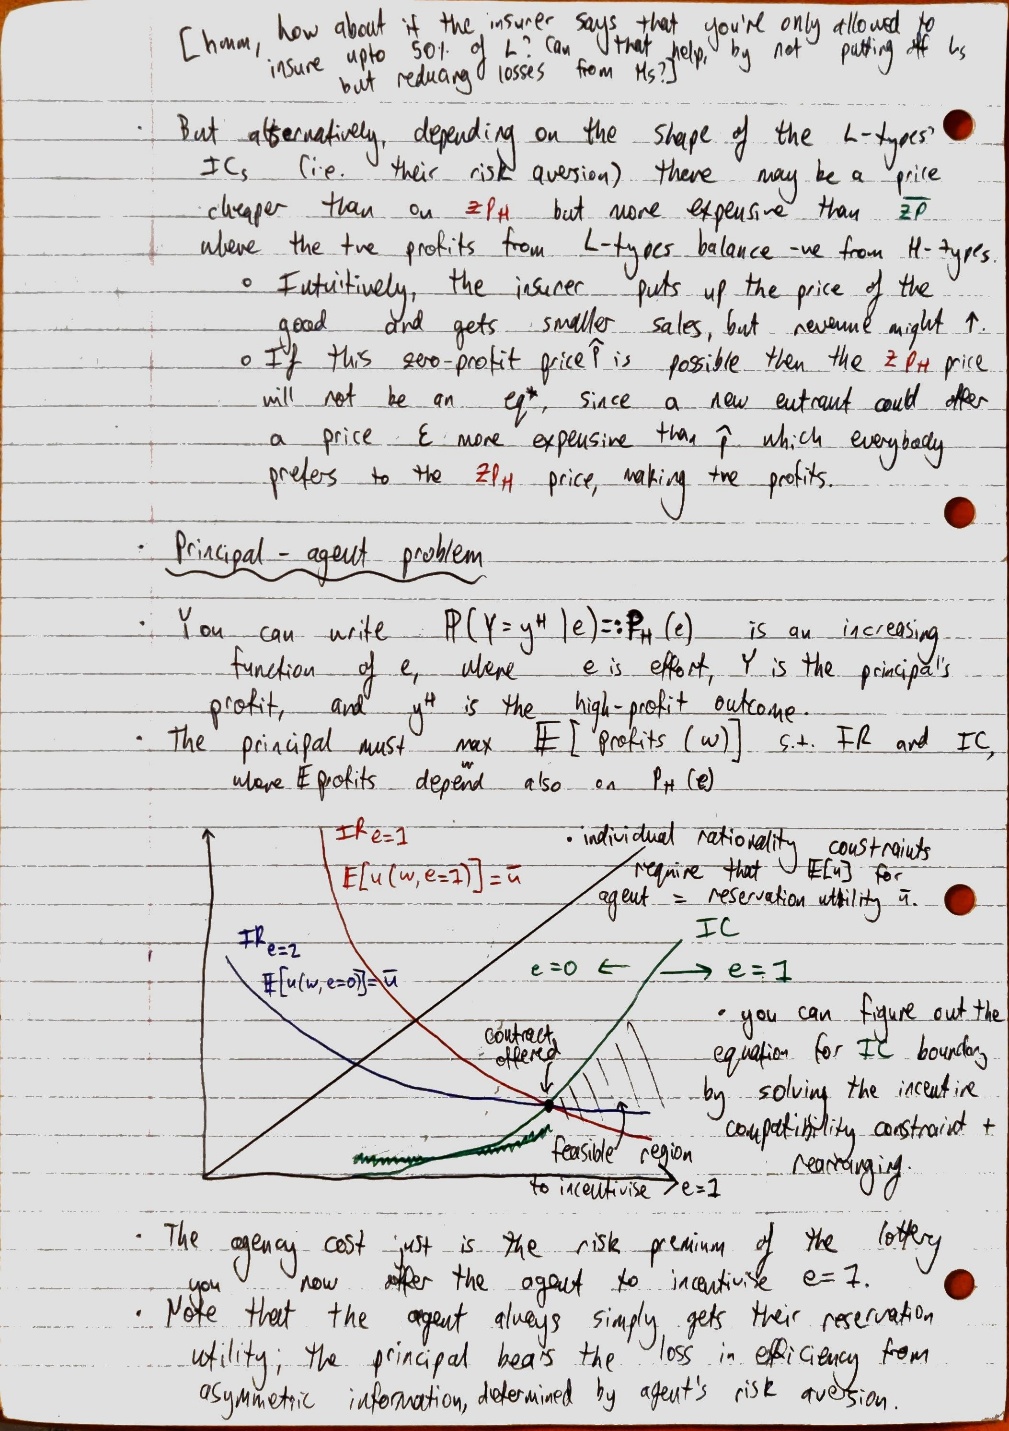 [hmm, how about if the insurer says that you're only allowed to
insure upto 50% of L? Can that help, by not putting off Ls
but reducing losses from Hs?]
· But alternatively, depending on the shape of the L-types'
ICs (i.e. their risk aversion) there may be a price
cheaper than on ZPH but more expensive than Z̅P̅
where the +ve profits from L-types balance -ve from H-types.
o Intuitively, the insurer puts up the price of the
good and gets smaller sales, but revenue might ↑.
o If this zero-profit price P̂ is possible then the ZPH price
will not be an eqm, since a new entrant could offer
a price ε more expensive than P̂ which everybody
prefers to the ZPH price, making +ve profits.
· Principal-agent problem
· You can write ℙ(Y=yᴴ|e)=:PH(e) is an increasing
function of e, where e is effort, Y is the principal's
profit, and yᴴ is the high-profit outcome.
· The principal must max 𝔼[profits (w)] s.t. IR and IC,
w
where 𝔼 profits depend also on PH(e)
IR e=1
E[u(w,e=1)]=ū
· individual rationality constraints
require that 𝔼[u] for
agent = reservation utility ū.
IC
IR e=2
𝔼[u(w,e=0)]=ū
e=0 ← → e=1
contract
offered
· you can figure out the
equation for IC boundary
by solving the incentive
compatibility constraint +
rearranging.
feasible region
to incentivise e=1
· The agency cost just is the risk premium of the lottery
you now offer the agent to incentivise e=1.
· Note that the agent always simply gets their reservation
utility; the principal bears the loss in efficiency from
asymmetric information, determined by agent's risk aversion.